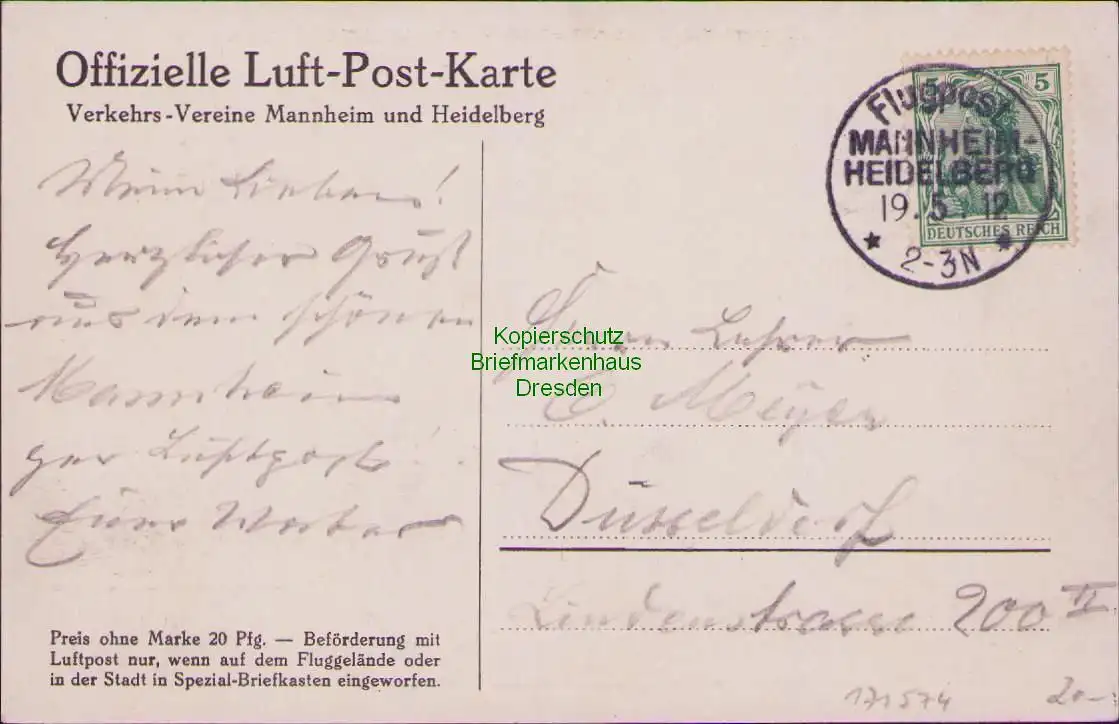 Offizielle Luft-Post-Karte
Verkehrs-Vereine Mannheim und Heidelberg
5 5
Flugpost
MANNHEIM-
HEIDELBERG
19.5.12
2-3N
DEUTSCHES REICH
Meine Lieben!
Herzlicher Gruß
aus dem schönen
Mannheim
per Luftpost
Euer
Kopierschutz
Briefmarkenhaus
Dresden
Herrn Lehrer
C. Meyer
Düsseldorf
Lindenstrasse 200 II
Preis ohne Marke 20 Pfg. — Beförderung mit
Luftpost nur, wenn auf dem Fluggelände oder
in der Stadt in Spezial-Briefkasten eingeworfen.
171574
20.-